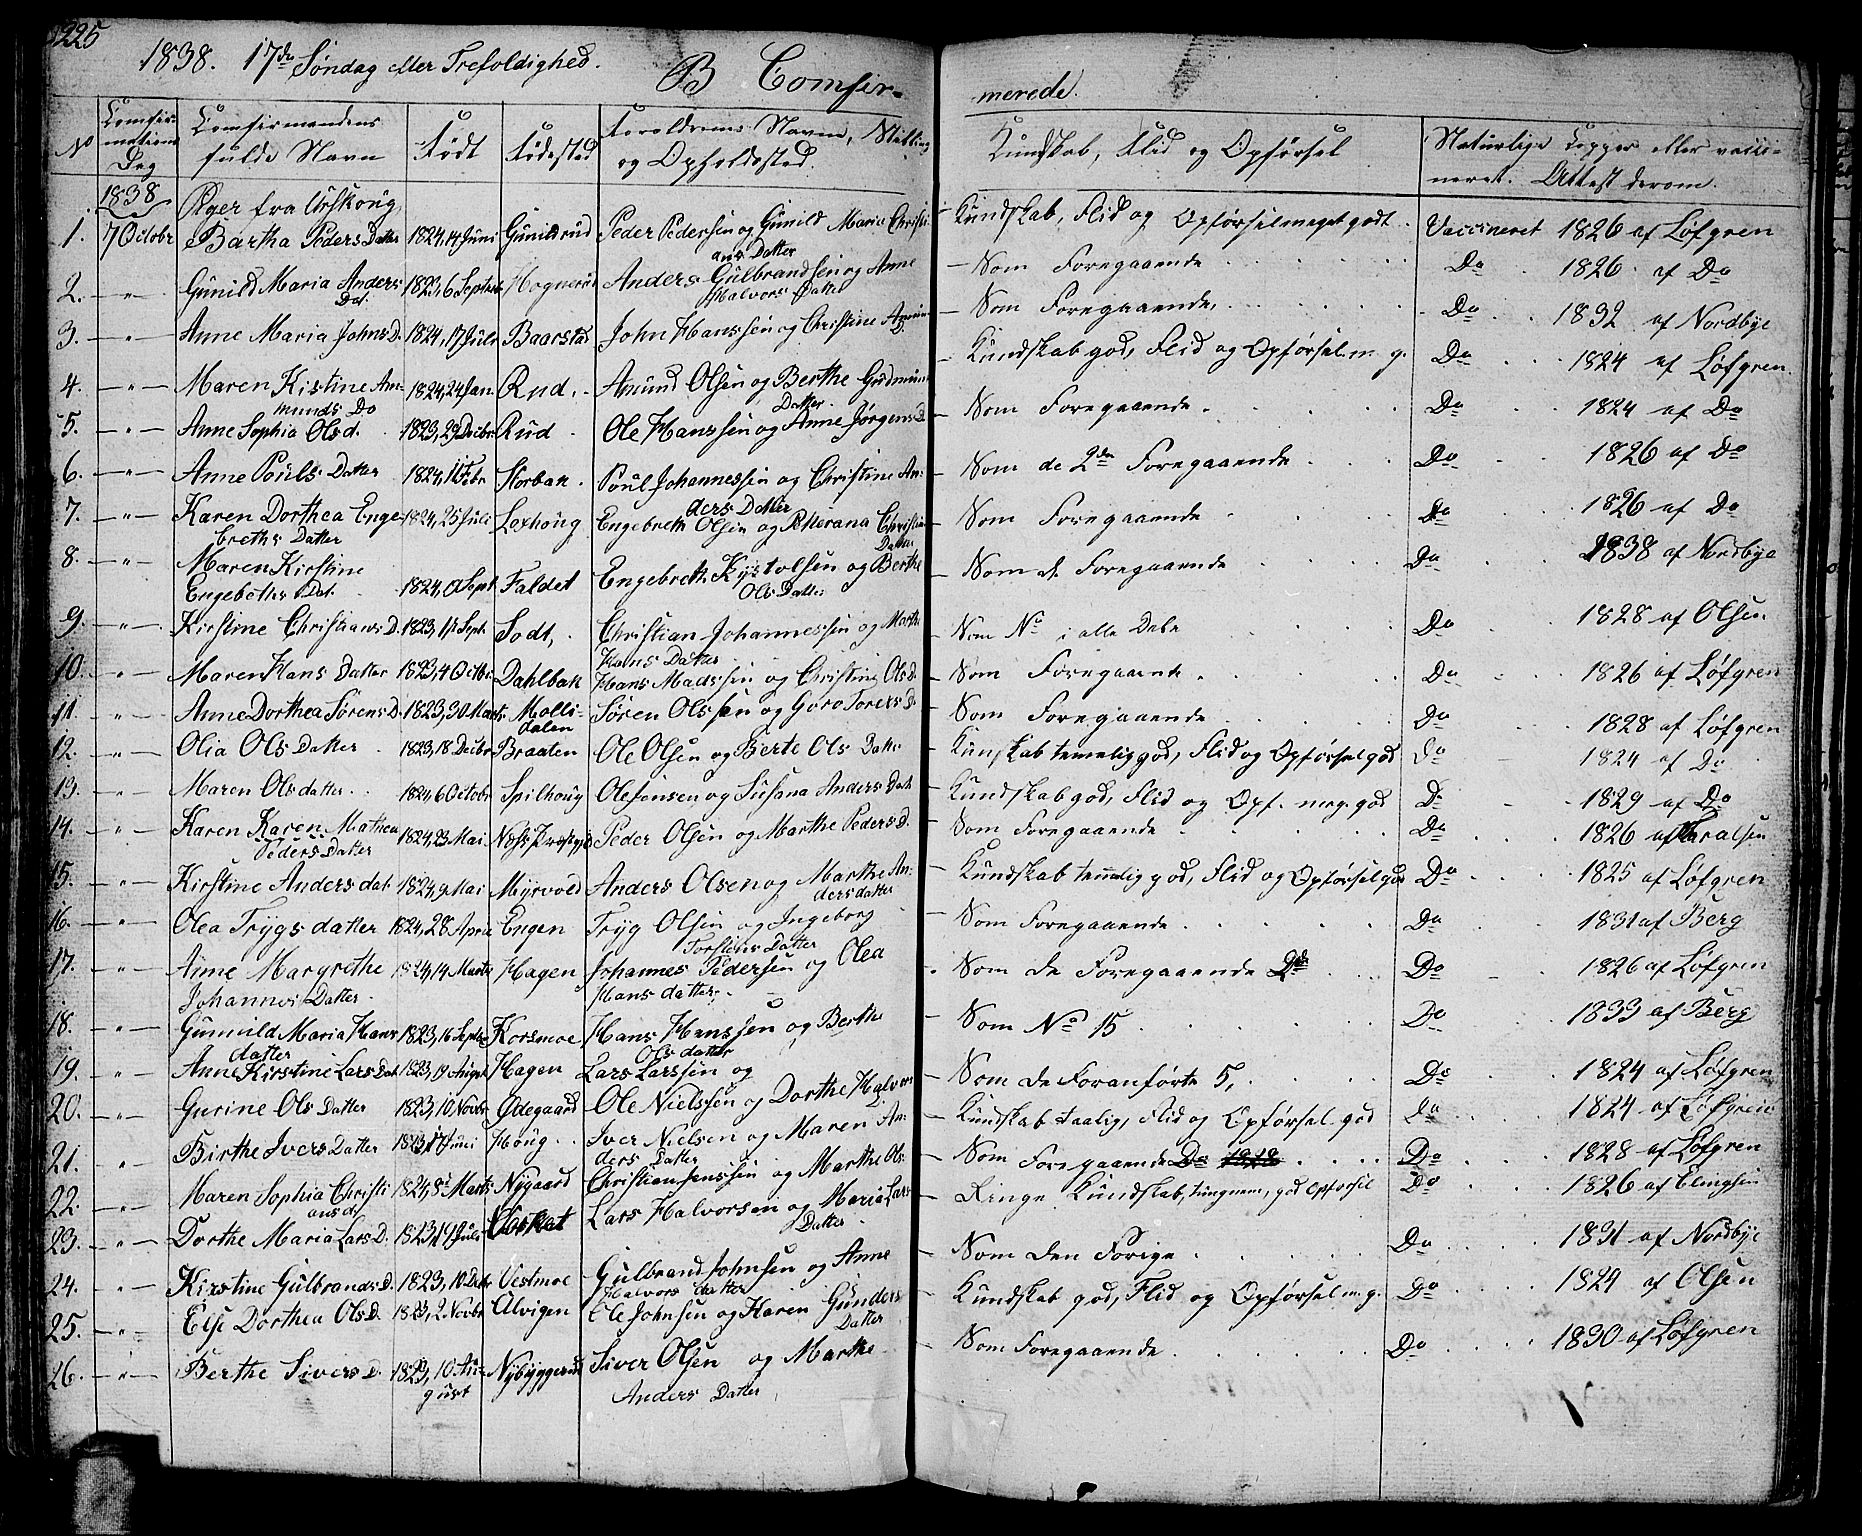 225
1838. 17de Søndag efter Trefoldighed.
B Comfir-
merede.
No
Comfir-
mations
Dag
Comfirmandens
fulde Navn
Født
Fødested
Forældrenes Navne, Stilling
og Opholdssted.
Kundskab, Flid og Opførsel
Naturlige Copper eller vacci-
neret. Attest derom.
1838
Piger fra Urskoug
1. 7 Octobr Bartha Peders Datter 1824, 14 Juni Gunildrud Peder Pedersen og Gunild Marie Christi-
ans Datter
Kundskab, Flid og Opførsel meget godt. Vaccineret 1826 af Løfgren
2. —"— Gunild Maria Anders 1823, 6 Septbr Hognerud Anders Gulbrandsen og Anne
Dat. Halvors Datter
— Som Foregaaende Do 1826 af Do
3. —"— Anne Maria Johns D. 1824, 17 Juli Baarstad John Hanssen og Christine
— Som Foregaaende, Do 1832 af Nordbye
4. —"— Maren Kistine Am- 1824, 24 Jan. Rud. Amund Olsen og Berthe Gudmun
munds Do Datter
Kundskab god, Flid og Opførsel m. g. Do 1824 af Løfgren.
5. —"— Anne Sophia Olsd. 1823, 29 Decbr Rud Ole Hanssen og Anne Jørgens D.
— Som Foregaaende Do 1824 af Do
6. —"— Anne Pouls Datter 1824, 11 Febr Norbak. Poul Johannessen og Christine An-
ders Datter
— Som de 2de Foregaaende Do 1826 af Do
7. —"— Karen Dorthea Enge- 1824, 25 Juli Loxhoug Engebreth Olsen og Christin
breths Datter Datter
— Som Foregaaende Do 1826 af Do
8. —"— Maren Kirstine
Engebeths Dat. 1824, Sept. Faldet Engebreth Kjøstolsen og Berthe
Ols Datter
— Som de Foregaaende Do 1838 af Nordbye
9. —"— Kirstine Christians D. 1823, Sept. Sodt, Christian Johannessen og Marthe
Hans Datter
— Som No i alle Dele Do 1828 af Olsen
10. —"— Maren Hans Datter 1823, 4 Octbr Dahlbak Hans Madssen og Christine Ols D.
— Som Foregaaende Do 1826 af Løfgren
11. —"— Anne Dorthea Sørens D. 1823, 30 Marts Molli-
dalen Søren Olssen og Goro Torers D.
— Som Foregaaende Do 1828 af Løfgren
12. —"— Olia Ols Datter 1823, 18 Decbr Braaten Ole Olsen og Berte Ols Datter
Kundskab temelig god, Flid og Opførsel god Do 1824 af Do
13. —"— Maren Olsdatter 1824, 6 Octobr Spilhoug Ole Jensen og Susana Anders Datt
Kundskab god, Flid og Opf. meg. god Do 1829 af Do
14. —"— Karen Karen Mathea 1824, 23 Mai Peder Olsen og Marthe Peders D.
Peders Datter
— Som Foregaaende Do 1826 af
15. —"— Kirstine Anders dat. 1824, 9 Mai Myrvold Anders Olsen og Marthe An-
dersdatter
— Kundskab temelig god, Flid og Opførsel god Do 1825 af Løfgren
16. —"— Olea Trygs datter 1824, 28 April Engen Tryg Olsen og Ingeborg
Torstens Datter
— Som Foregaaende Do 1831 af Berg
17. —"— Anne Margrethe 1824, 14 Marts Hagen Johannes Pedersen og Olea
Johannes Datter. Hans datter.
— Som de Foregaaende 2de Do 1826 af Løfgren
18. —"— Gunnild Maria Hans 1823, 16 Septbr Korsmoe Hans Hanssen og Berthe
datter Ols datter
— Som No 15 Do 1833 af Berg
19. —"— Anne Kirstine Lars Dat. 1823, 19 August Hagen Lars Larssen og
— Som de Foranførte 5, Do 1824 af Løfgren
20. —"— Gurine Ols Datter 1823, 10 Novbr Ødegaard Ole Nielssen og Dorthe Halvors
D.
— Kundskab taalig, Flid og Opførsel god Do 1824 af Løfgren
21. —"— Birthe Ivers Datter 1823, 17 Juni Houg Iver Nielsen og Maren An-
ders Datter
— Som Foregaaende Do Do 1828 af Løfgren
22. —"— Maren Sophia Christi 1824, 8 Marts Nygaard Christian Jenssen og Marthe Ols
ans d.
— Ringe Kundskab, tungnem, god Opførsel Do 1826 af Elingsen
23. —"— Dorthe Maria Lars D. 1823, 19 Juli Lars Halvorsen og Maria Lars
Datter
— Som den Forige Do 1831 af Nordbye
24. —"— Kirstine Gulbrands D. 1823, 10 Vestmoe Gulbrand Johnsen og Anne
Halvors datter
— Kundskab god, Flid og Opførsel m. g. Do 1824 af Olsen
25. —"— Else Dorthea Ols D. 1823, 2 Novbr Ulvigen Ole Johnsen og Karen Gunders
Datter
— Som Foregaaende Do 1830 af Løfgren
26. —"— Berthe Sivers D. 1823, 10 Au- Nybyggerud Siver Olsen og Marthe
gust Anders Datter